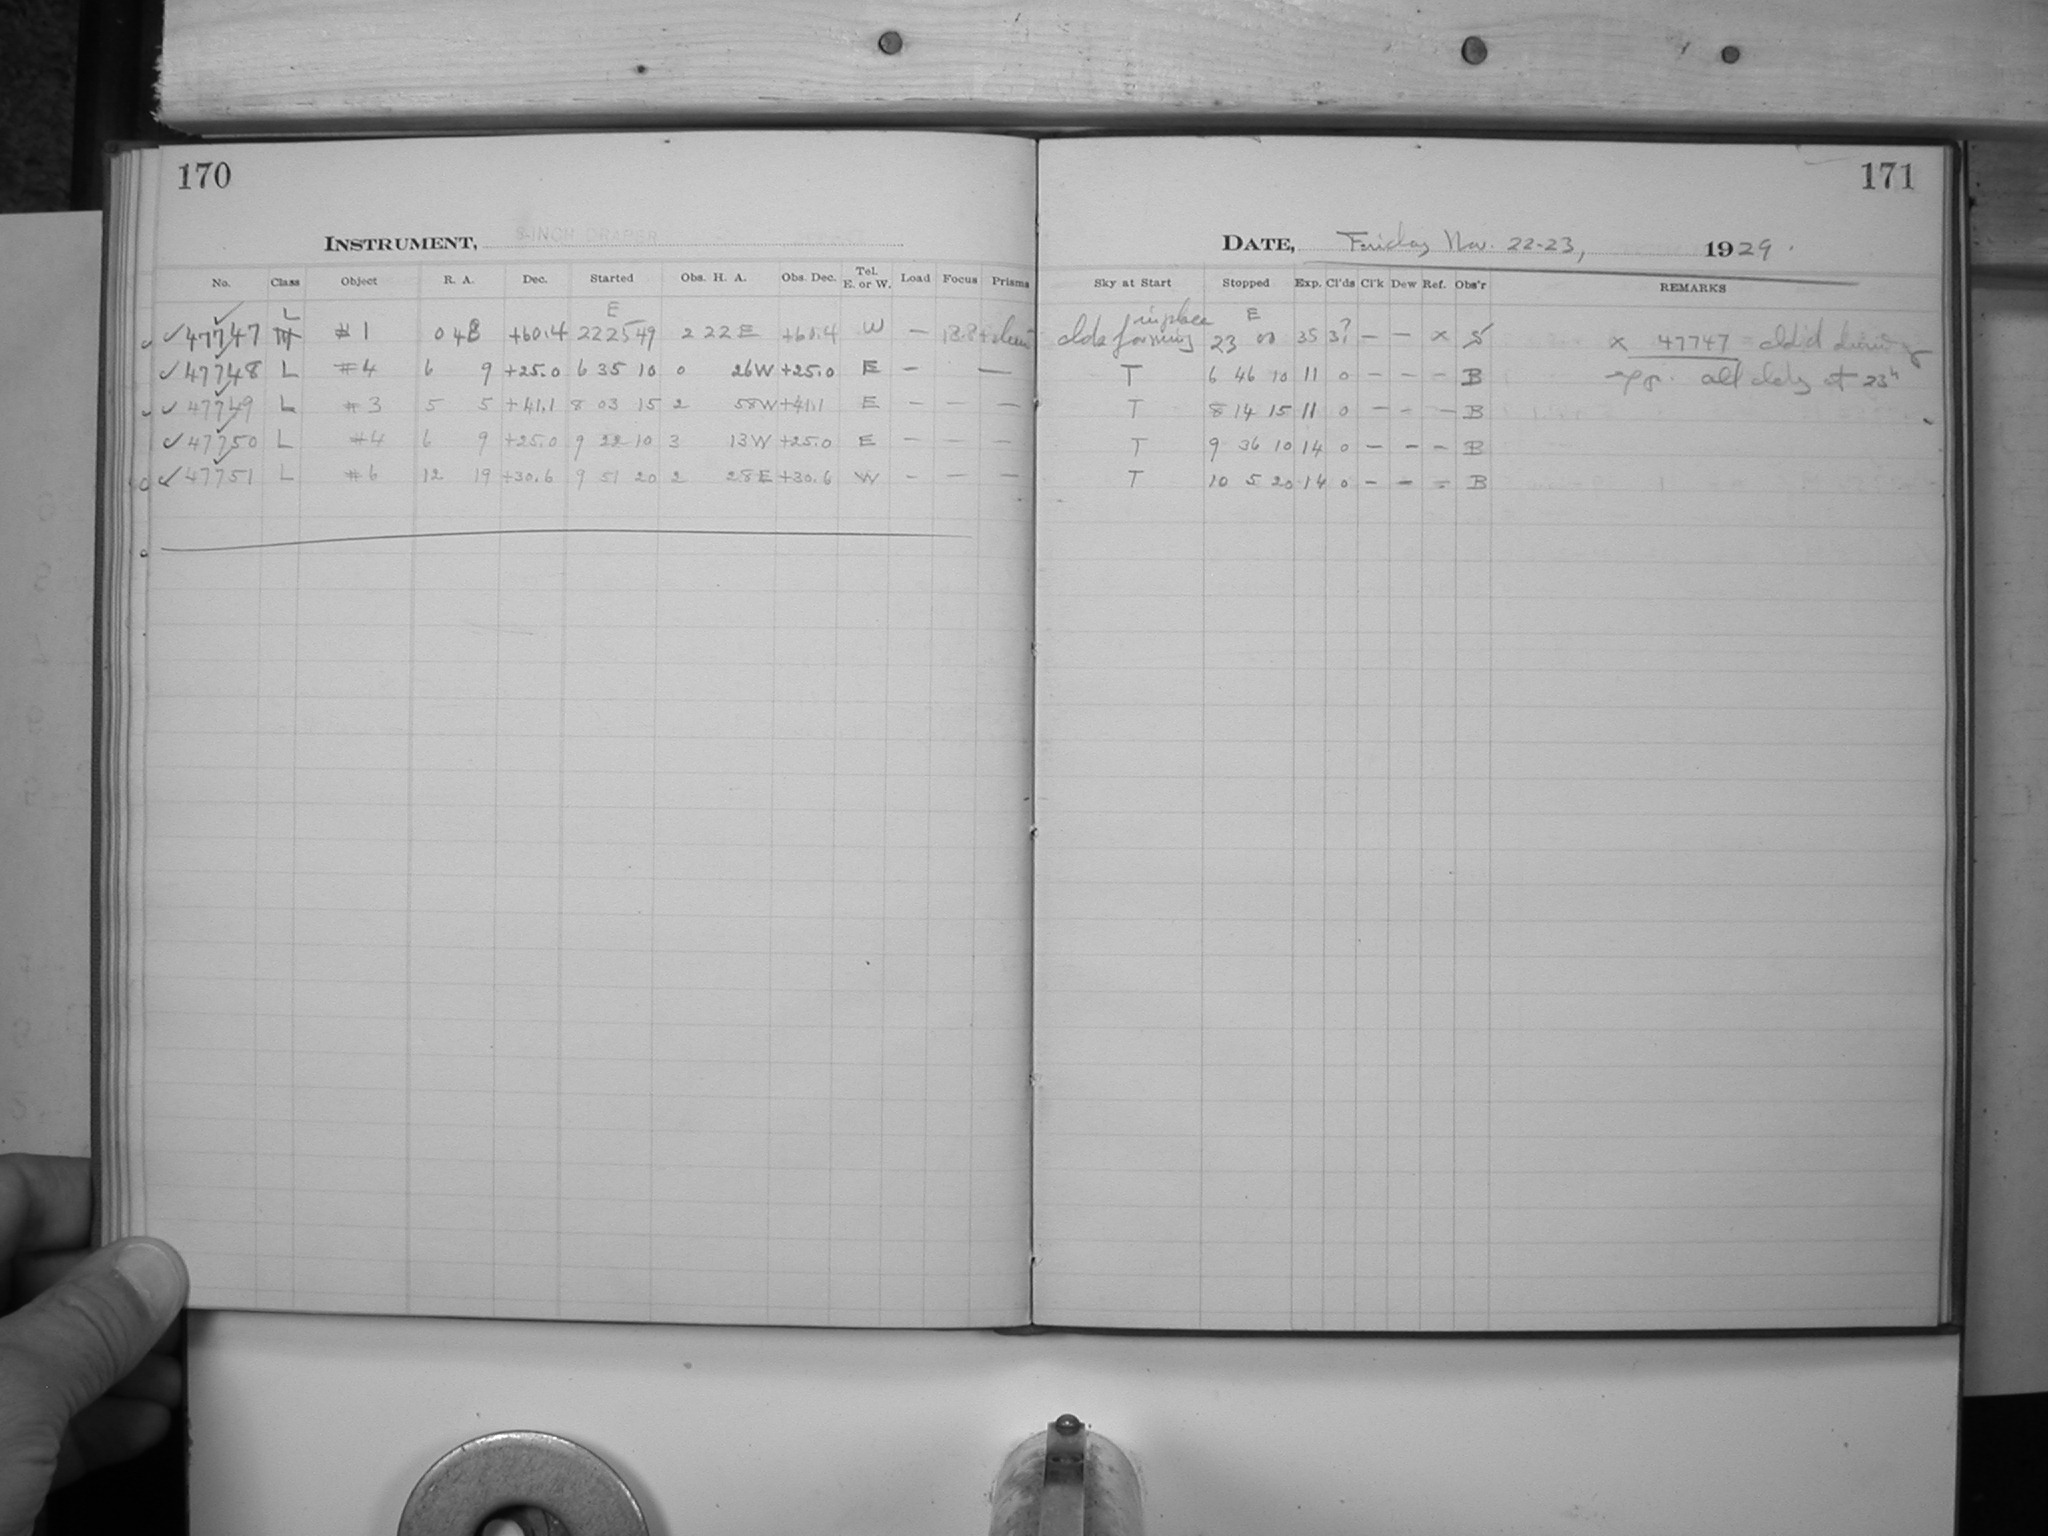 170
INSTRUMENT, 8-INCH DRAPER
No. Class Object R. A. Dec. Started Obs. H. A. Obs. Dec. Tel. E. or W. Load Focus Prisms
L E
47747 #1 0 48 +60.4 22 25 49 2 22 E +60.4 W — 18.8
47748 L #4 6 9 +25.0 6 35 10 0 26W +25.0 E — —
47749 L #3 5 5 +41.1 8 03 15 2 58W +41.1 E — — —
47750 L #4 6 9 +25.0 9 22 10 3 13W +25.0 E — — —
47751 L #6 12 19 +30.6 9 51 20 2 28E +30.6 W — — —
171
DATE, Friday Nov. 22-23, 1929.
Sky at Start Stopped Exp. Cl'ds Cl'k Dew Ref. Obs'r REMARKS
in places E
clds forming 23 00 35 3? — — x S x 47747 cld'd during
T 6 46 10 11 0 — — — B exp. all cldy at 23h
T 8 14 15 11 0 — — — B
T 9 36 10 14 0 — — — B
T 10 5 20 14 0 — — — B